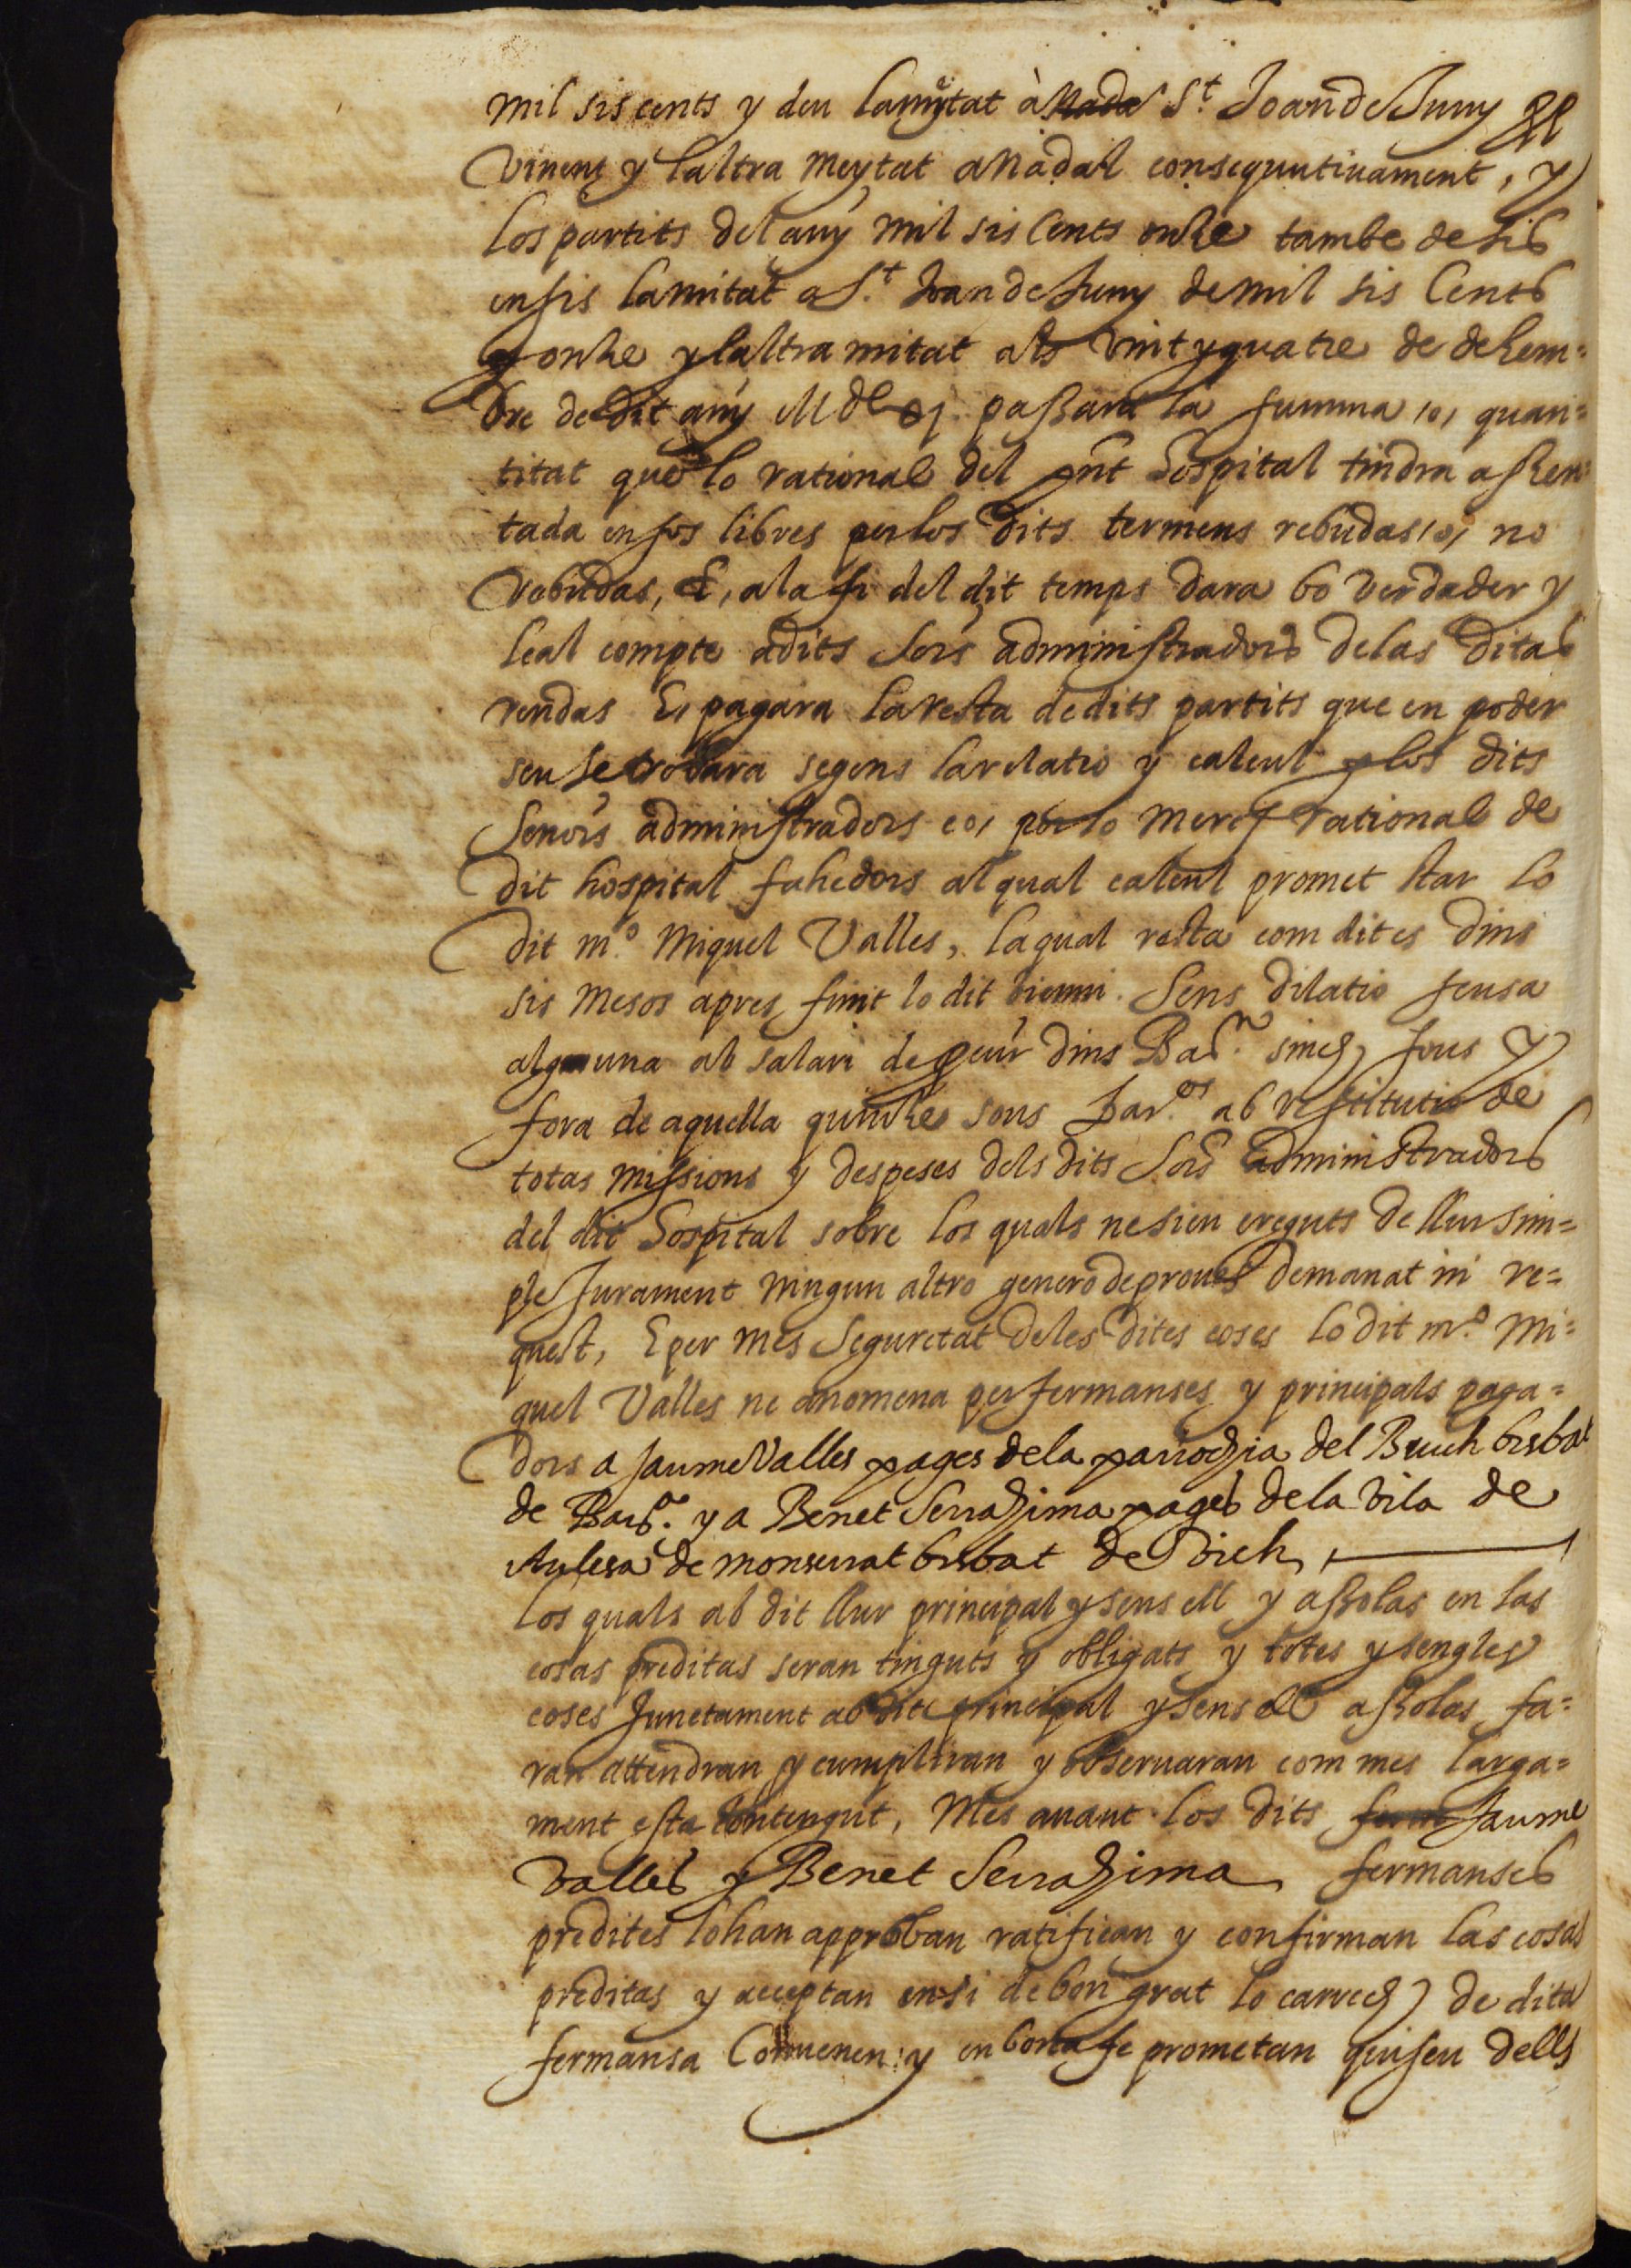 mil siscents y deu lamytat à Nadal S.t Joan de Juny
vinent y laltra meytat a Nadal consequutivament, y
los partits del any mil sis Cents onze tambe de sis
en sis lamitat a S.t Joan de Juny de mil sis Cents
y onze y laltra mitat als vint y quatre de dezem=
bre de dit any passant la summa, o, quan=
titat que lo rational del pnt Hospital tindra assen=
tada en sos libres per los dits termens rebudas, o, no
rebudas, E, a la fi del dit temps dara bo verdader y
leal compte a dits Sors administradors de las ditas
rendas E, pagara la resta de dits partits que en poder
seu se trobara segons la relatio y calcul p los dits
Senors administradors eo, per lo rational de
dit hospital fahedors al qual calcul promet star lo
dit m.o Miquel Valles, la qual resta com dit es dins
sis mesos apres finit lo dit bienni. Sens dilatio scusa
alguna ab salari de dins Bar.na sinch sous y
fora de aquella quinze sous Bar.os ab restitutio de
totas missions y despeses dels dits Sors administradors
del dit Hospital sobre los quals ne sien creguts de llur sim=
ple Jurament ningun altro genero de proves demanat ni re=
quest, E per mes Seguretat de les dites coses lo dit m.o Mi=
quel Valles ne anomena per fermanses y principals paga=
dors a Jaume Valles pages de la parrochia del Bruch bisbat
de Bar.na y a Benet Serrahima pages de la vila de
de monserrat bisbat de Vich,
los quals ab dit llur principal y sens ell y assolas en las
cosas preditas seran tinguts y obligats y totes y sengles
coses Junctament ab dit principal y sens ell assolas fa=
ran attendran y cumpliran y observaran com mes larga=
ment esta contengut, Mes avant los dits Jaume
Valles y Benet Serrahima fermanses
predites lohan approban ratifican y confirman las cosas
preditas y acceptan en si de bon grat lo carrech de dita
fermansa Convenen y en bona fe prometan quiscu dells